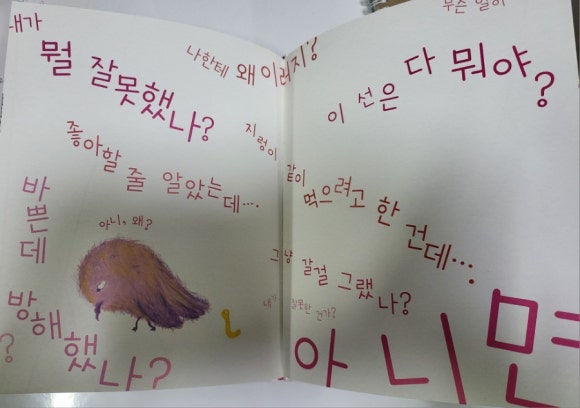 내가
뭘 잘못했나?
나한테 왜 이러지?
무슨 일이
이 선은 다 뭐야?
좋아할 줄 알았는데....
지렁이 같이 먹으려고 한 건데...
바쁜데
아니, 왜?
그냥 갈걸 그랬나?
내가 잘못한 건가?
방해했나?
?
아니면